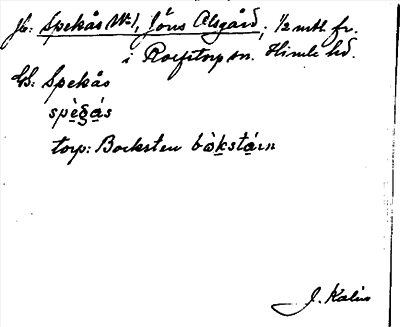 Jb: Spekås No 1, Jöns Alsgård; 1/2 mtl fr.
i Rolfstorp sn. Himle hd.
GS: Spekås
spègás
torp: Bocksten bòkstáin
J. Kalén